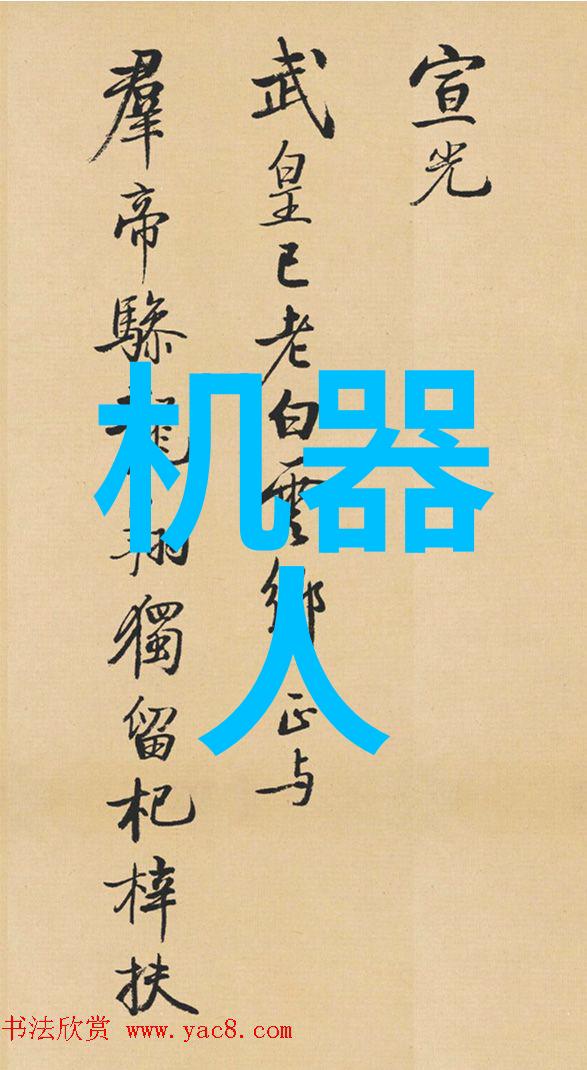 宣光
武皇已老白雲鄉正与
羣帝驂龍翔獨留杞梓扶
机器
人
书法欣赏 www.yac8.com